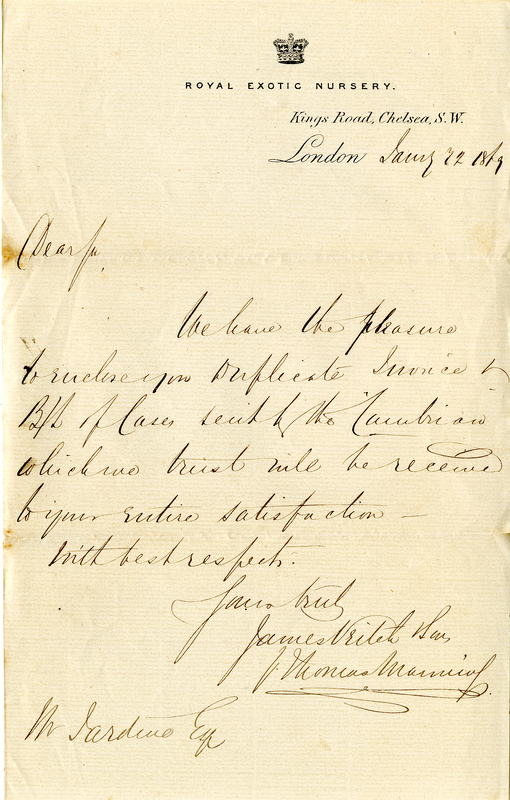 ROYAL EXOTIC NURSERY.
Kings Road, Chelsea, S.W.
London Jany 22 1869
Dear Sir,
We have the pleasure
to enclose you Duplicate Invoice &
B/L of Cases sent the "Cambrian
which we trust will be received
to your entire satisfaction —
With best respects.
Yours truly
James Veitch & Sons
Thomas Manning.
Jardine Esq